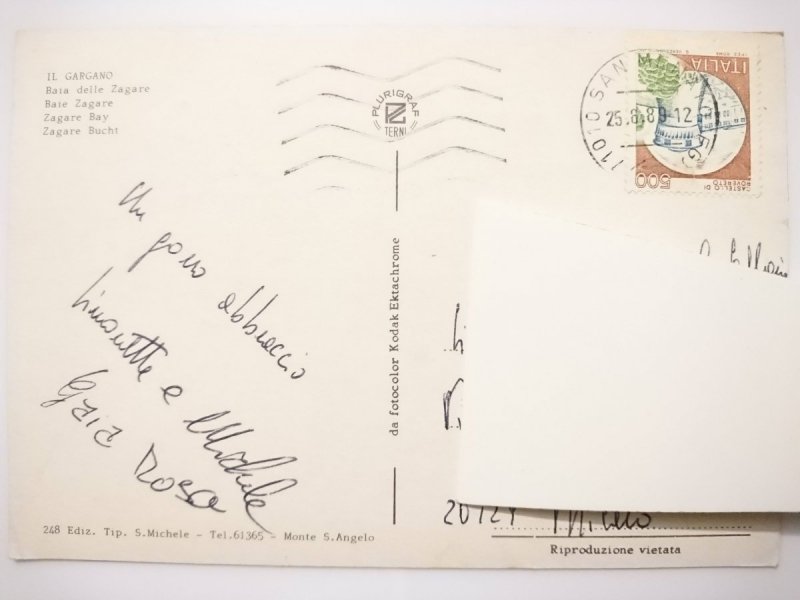 IL GARGANO
Baia delle Zagare
Baie Zagare
Zagare Bay
Zagare Bucht
PLURIGRAF
TERNI
11010 SAN
25.8.89-12
ITALIA
500
CASTELLO DI
ROVERETO
Un abbraccio
e Michele
Gaia Rosa
da fotocolor Kodak Ektachrome
20124 Milano
248 Ediz. Tip. S.Michele - Tel.61365 - Monte S.Angelo
Riproduzione vietata